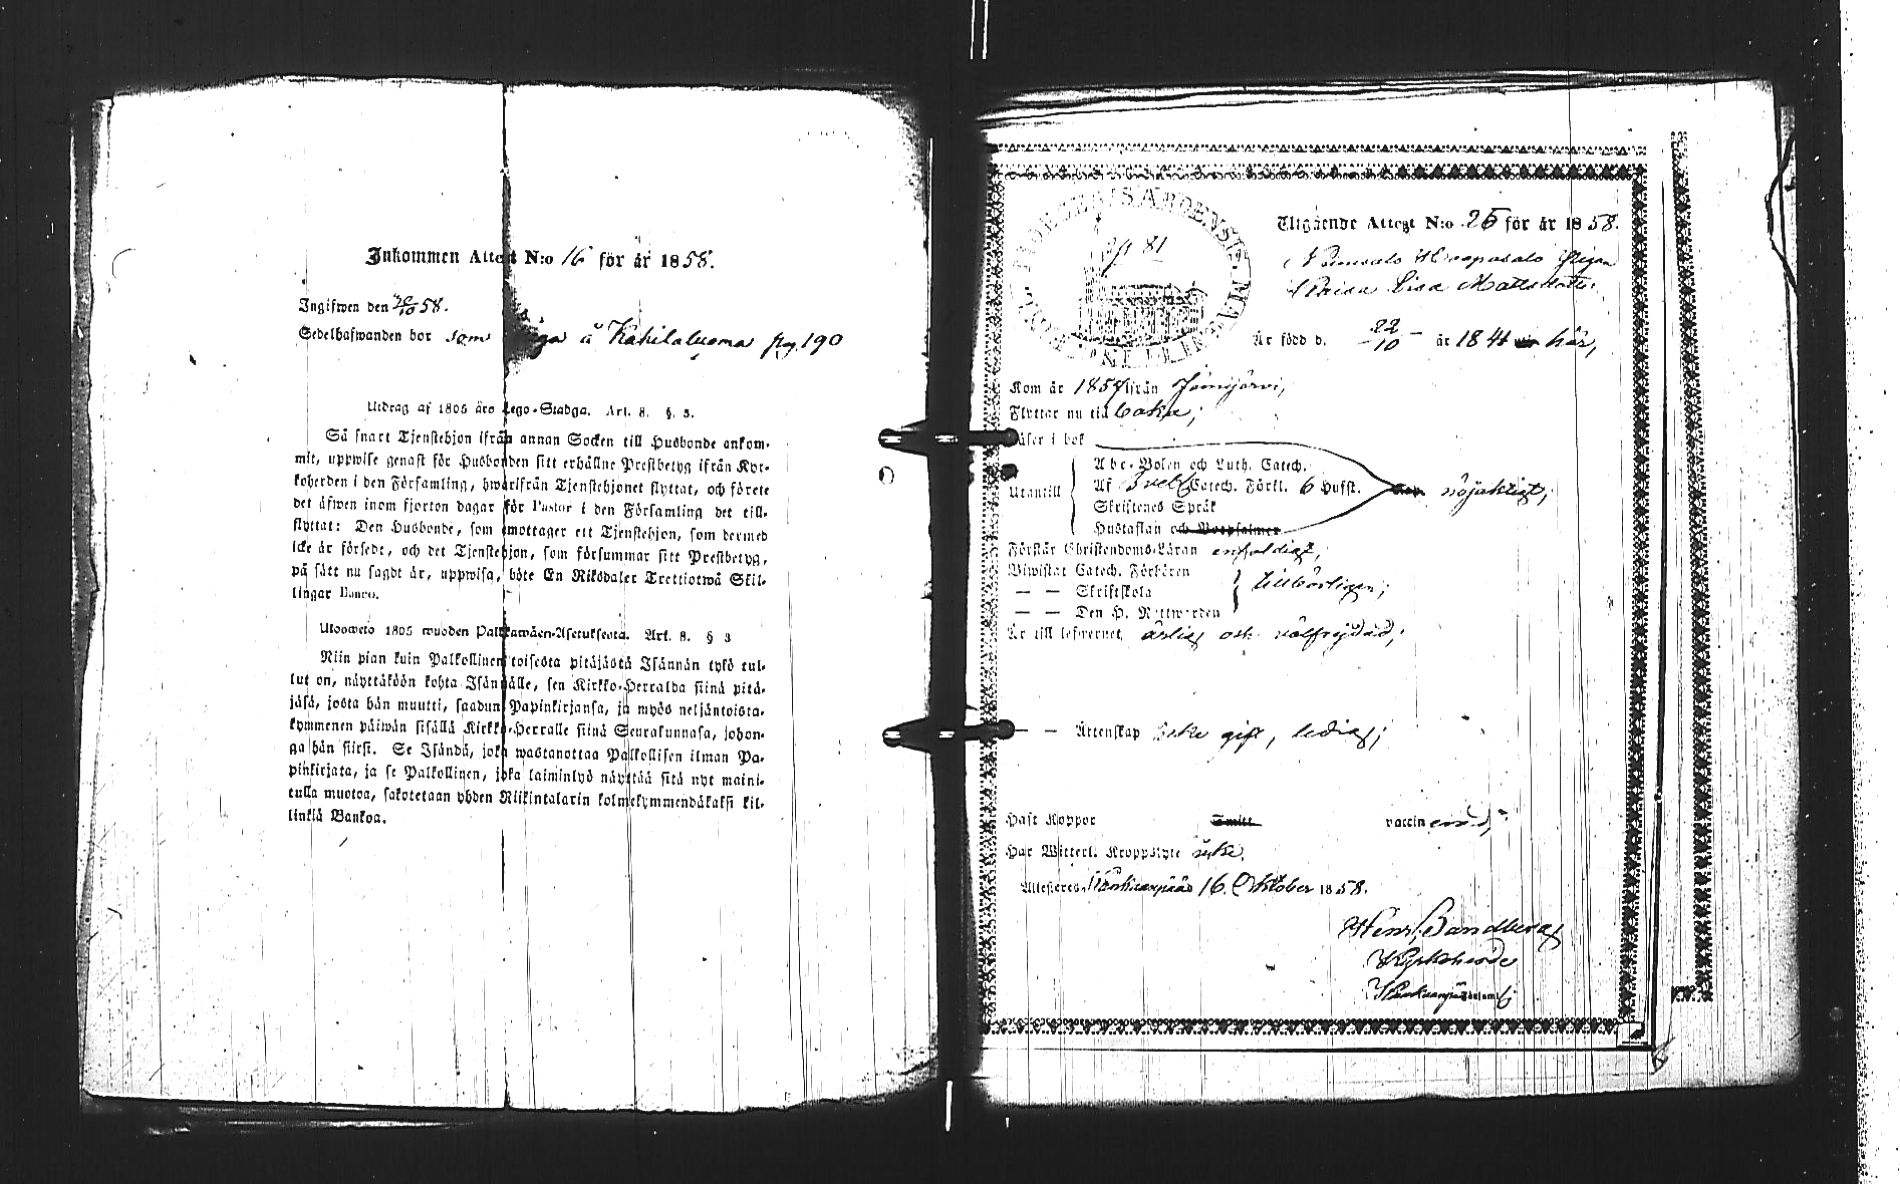 Inkommen Attest N:o 16 för år 1858.
Ingifwen den 20/10 58.
Sedelhafwanden bor som å Kahilaluoma pag. 190
Utdrag af 1805 års Lego-Stadga. Art. 8. §. 3.
Så snart Tjenstehjon ifrån annan Socken till Husbonde ankom-
mit, uppwise genast för Husbonden sitt erhållne Prestbetyg ifrån Kyr-
koherden i den Församling, hwarifrån Tjenstehjonet flyttat, och förete
det äfwen inom fjorton dagar för Pastor i den Församling det till-
flyttat: Den Husbonde, som emottager ett Tjenstehjon, som dermed
icke är försedt, och det Tjenstehjon, som försummar sitt Prestbetyg,
på sätt nu sagdt är, uppwisa, böte En Riksdaler Trettiotwå Skil-
lingar Banco.
Ulosweto 1805 wuoden Palkkawäen-Asetuksesta. Art. 8. § 3
Niin pian kuin Palkollinen toisesta pitäjästä Isännän tykö tul-
lut on, näyttäköön kohta Isännälle, sen Kirkko-Herralda siinä pitä-
jäsä, josta hän muutti, saadun Papinkirjansa, ja myös neljäntoista-
kymmenen päiwän sisällä Kirkko-Herralle siinä Seurakunnasa, johon-
ga hän siirsi. Se Isändä, joka wastanottaa Palkollisen ilman Pa-
pinkirjata, ja se Palkollinen, joka laiminlyö näyttää sitä nyt maini-
tulla muotoa, sakotetaan yhden Riikintalarin kolmekymmendäkaksi kil-
linkiä Bankoa.
Utgående Attest N:o 25 för år 1858.
Pigan
Lisa Mattsdotter
Är född d. 22/10 år 1841 här,
Kom år 1857 ifrån Jämijärvi,
Flyttar nu till
Läser i bok
Utantill
Abc-Boken och Luth. Catech.
Af Sveb. Catech. Förkl. 6 Hufst. nöjaktigt,
Skriftenes Språk
Hustaflan och Botpsalmer
Förstår Christendoms-Läran enfaldigt,
Biwistat Catech. Förhören
— — Skriftskola tillbörligen,
— — Den H. Nattwarden
Är till lefwernet ärlig och välfrejdad,
— — Ägtenskap icke gift, ledig,
Haft Koppor vaccinerad,
Har Witterl. Kroppslyte icke.
Attesteras, Kankaanpää 16. Oktober 1858.
Henr. Sandberg
Kyrkoherde